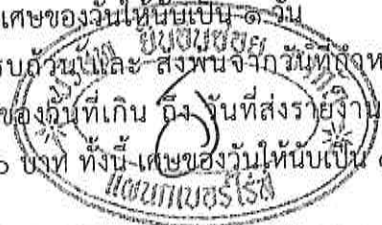 เศษของวันให้นับเป็น ๑ วัน
รบถ้วน และ ส่งพ้นจากวันที่กำห
ของวันที่เกิน ถึง วันที่ส่งรายงาน
๐ บาท ทั้งนี้ เศษของวันให้นับเป็น
แผนกเบอร์ไร่ส์